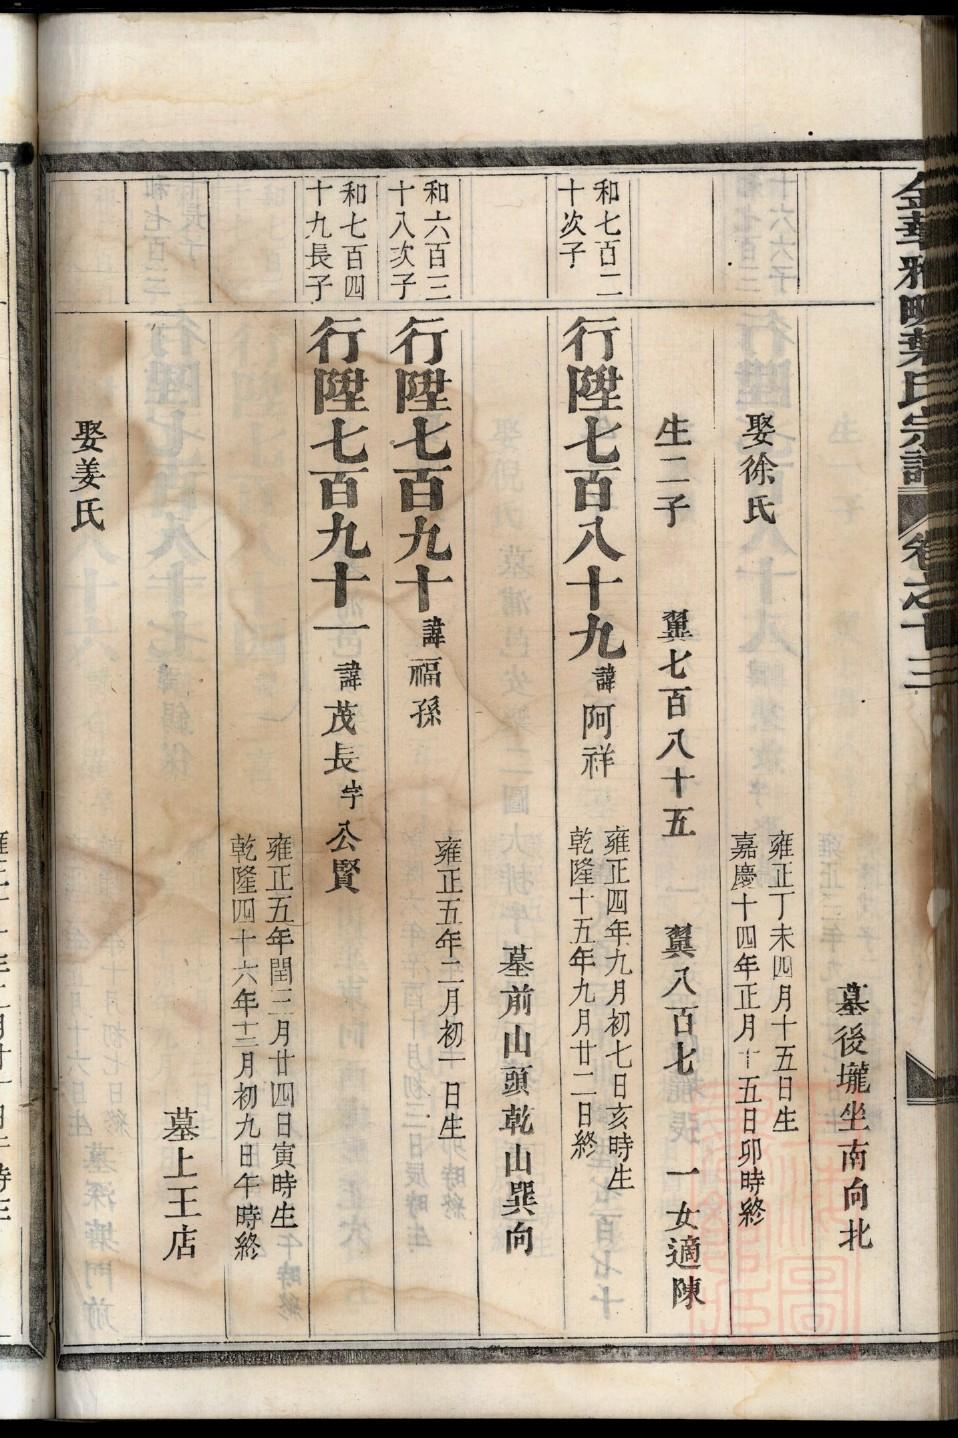 金華雅畈葉氏宗譜 卷之十三
墓後壠坐南向北
娶徐氏
雍正丁未四月十五日生
嘉慶十四年正月十五日卯時終
生二子 翼七百八十五 翼八百七 一女適陳
和七百二
十次子
行陞七百八十九 諱阿祥
雍正四年九月初七日亥時生
乾隆十五年九月廿二日終
墓前山頭乾山巽向
和六百三
十八次子
行陞七百九十 諱福孫
雍正五年二月初一日生
和七百四
十九長子
行陞七百九十一 諱茂長字公賢
雍正五年閏三月廿四日寅時生
乾隆四十六年十二月初九日午時終
墓上王店
娶姜氏